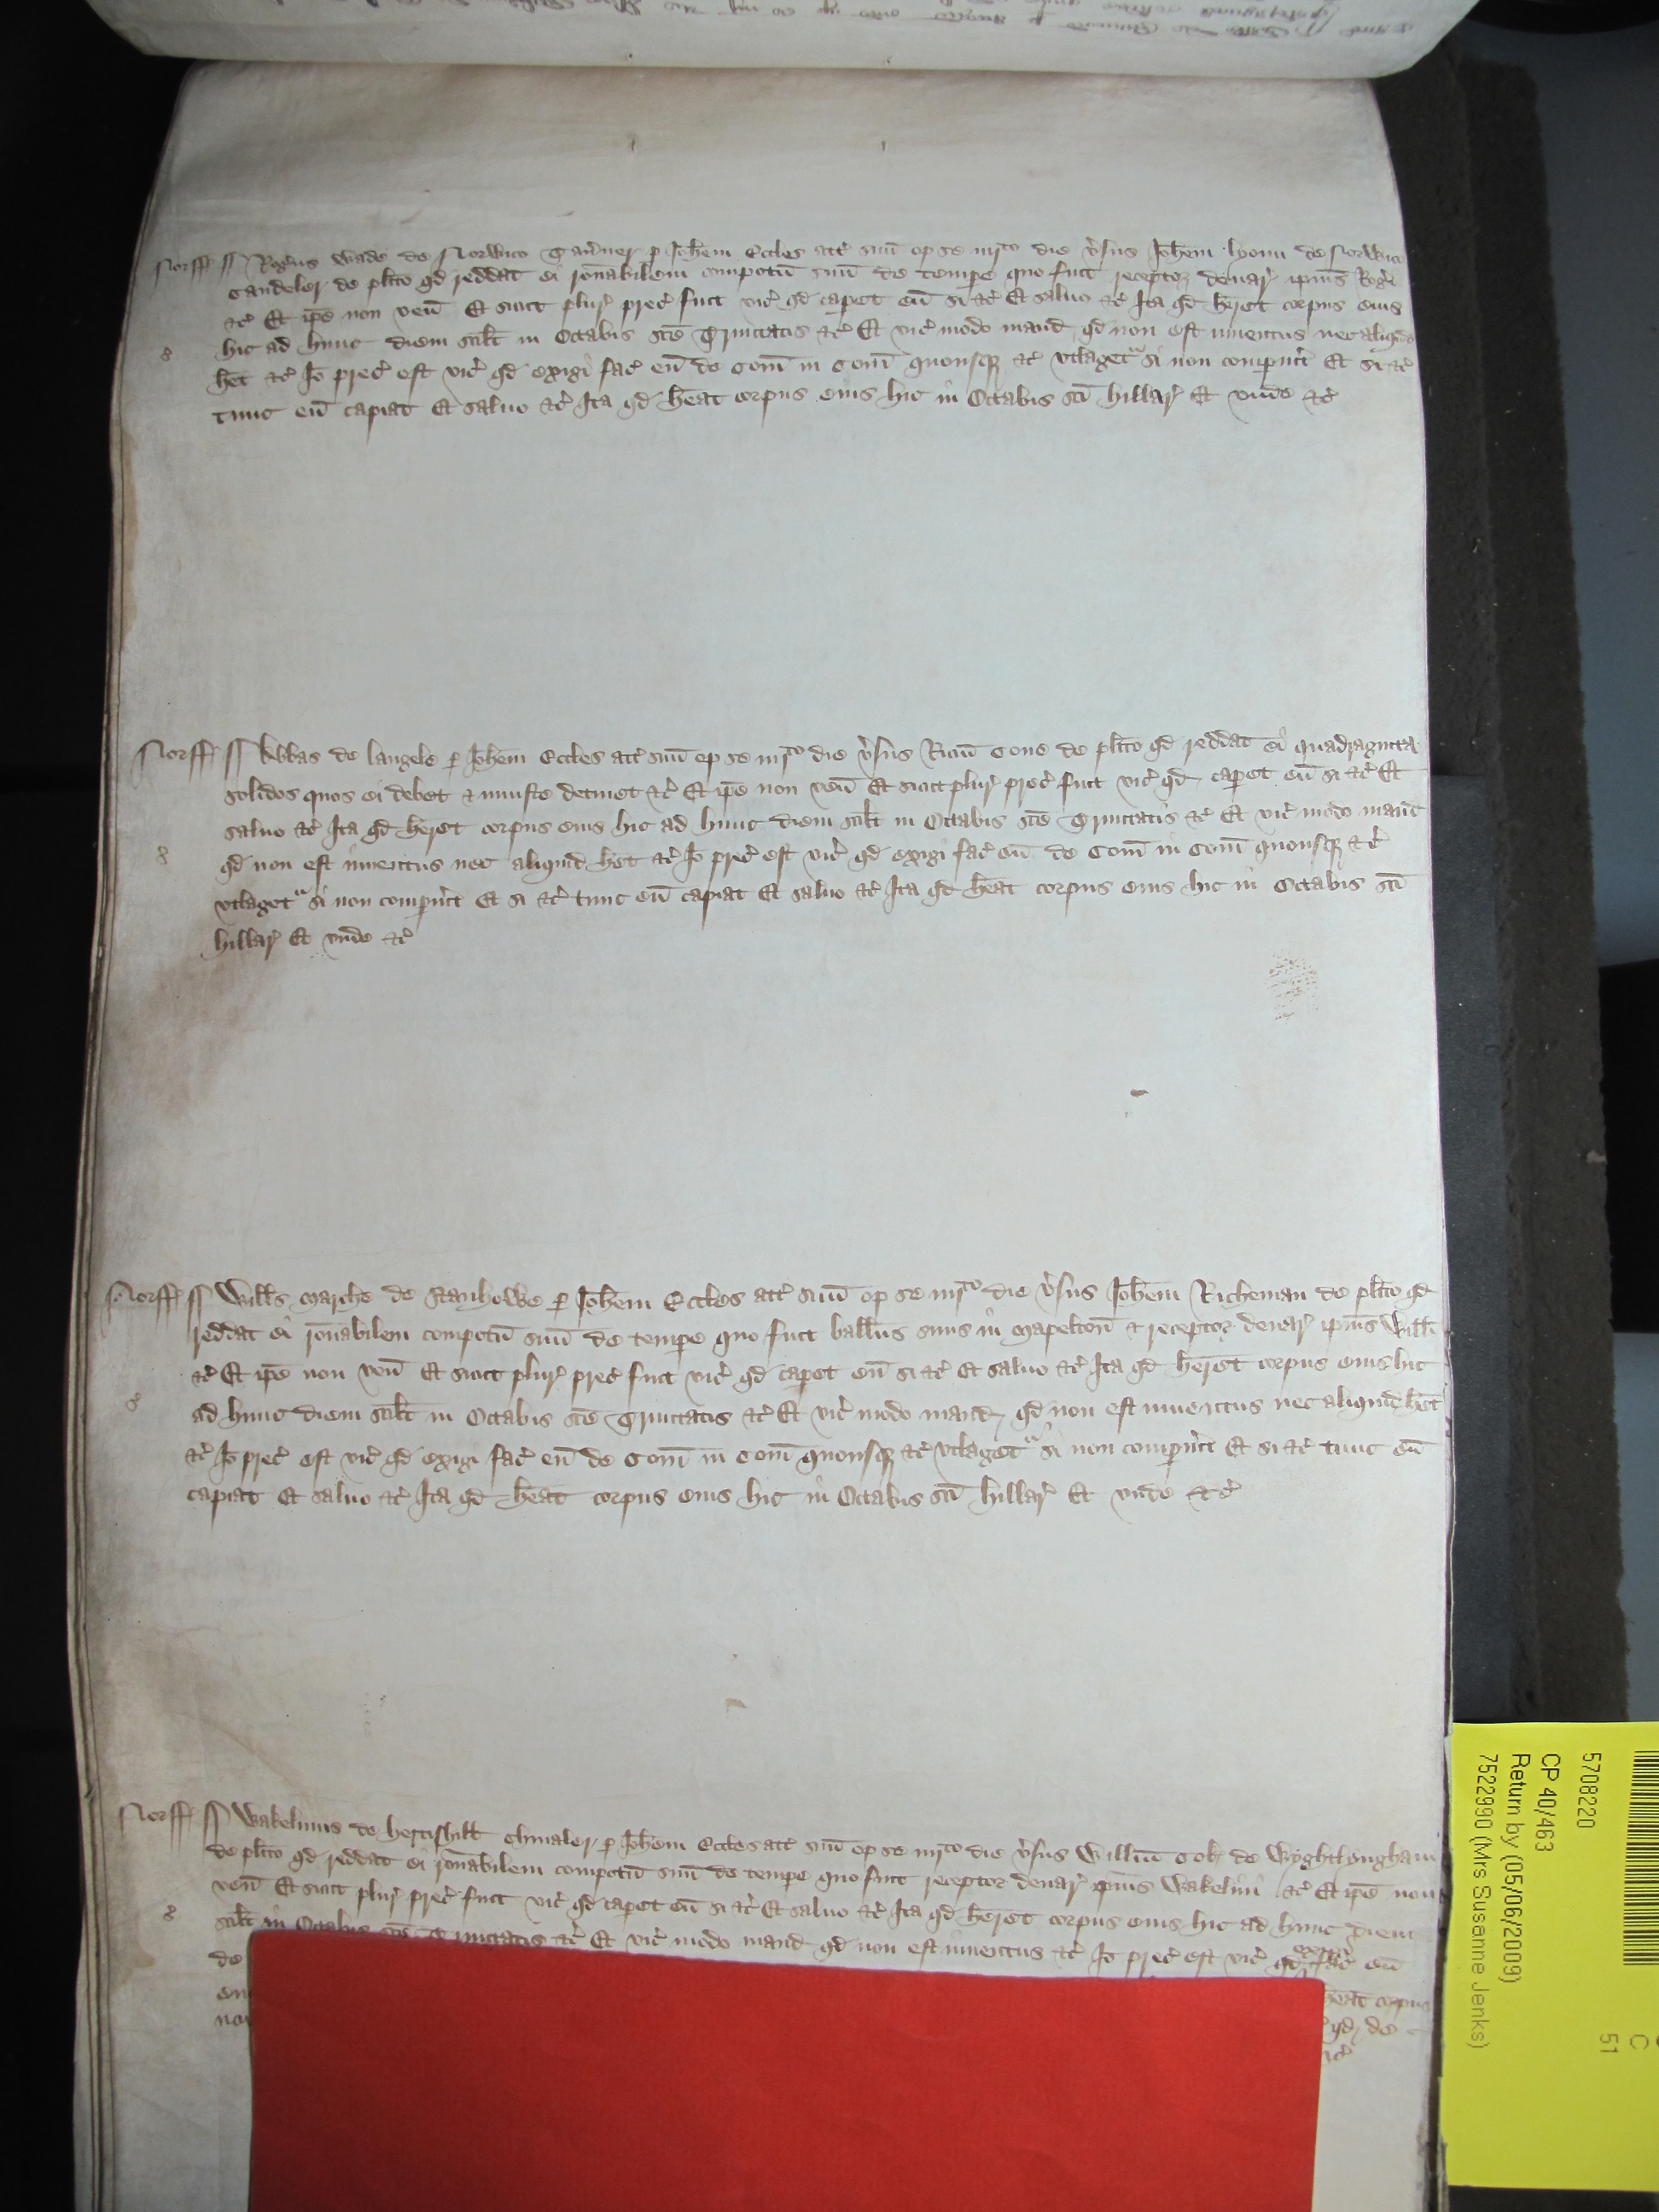 Norff ss Rog'us Wade de Norwico Tann'er p Joh'em Eccles att' suu' op se iiijto die v'sus Joh'em lyoun de Norwico
Candeler de pl'ito qd reddat ei ron'abilem compotu' suu' de tempe quo fuit receptor denar' ipius Rog'i
&c' Et ip'e non ven' Et sicut plur' prec' fuit vic' qd caperet eu' si &c' Et saluo &c' Ita qd h'eret corpus eius
hic ad hunc diem scil't in Octabis s'ce Trinitatis &c' Et vic' modo mand' qd non est inuentus nec aliquid
h'et &c' Io' prec' est vic' qd exigi fac' eu' de Com' in Com' quousq' &c' vtlaget'a si non comp'uit Et si &c'
tunc eu' capiat Et saluo &c' Ita qd h'eat corpus eius hic in Octabis s'ci hillar' Et vnde &c'
Norff ss Abbas de langele p Joh'em Eccles att' suu' op se iiijto die v'sus Ric'um Cone de pl'ito qd reddat ei quadraginta
solidos quos ei debet & iniuste detinet &c' Et ip'e non ven' Et sicut plur' prec' fuit vic' qd caperet eu' si &c' Et
saluo &c' Ita qd h'eret corpus eius hic ad hunc diem scil't in Octabis s'ce Trinitatis &c' Et vic' modo mand'
qd non est inuentus nec aliquid h'et &c' Io' prec' est vic' qd exigi fac' eu' de Com' in Com' quousq' &c'
vtlaget'a si non comp'uit Et si &c' tunc eu' capiat Et saluo &c' Ita qd h'eat corpus eius hic in Octabis s'ci
hillar' Et vnde &c'
Norff ss Will's Marche de Stanhowe p Joh'em Eccles att' suu' op se iiijto die v'sus Joh'em Richeman de pl'ito qd
reddat ei ron'abilem compotu' suu' de tempe quo fuit balli'us suus in Mapelton' & receptor denar' ipius Will'i
&c' Et ip'e non ven' Et sicut plur' prec' fuit vic' qd caperet eu' si &c' Et saluo &c' Ita qd h'eret corpus eius hic
ad hunc diem scil't in Octabis s'ce Trinitatis &c' Et vic' modo mand' qd non est inuentus nec aliquid h'et
&c' Io' prec' est vic' qd exigi fac' eu' de Com' in Com' quousq' &c' vtlaget'a si non comp'uit Et si &c' tunc eu'
capiat Et saluo &c' Ita qd h'eat corpus eius hic in Octabis s'ci hillar' Et vnde &c'
Norff ss Wakelinus de hertishill' Chiualer p Joh'em Eccles att' suu' op se iiijto die v'sus Will'um Cok de Wyghtlyngham
de pl'ito qd reddat ei ron'abilem compotu' suu' de tempe quo fuit receptor denar' ipius Wakelini &c' Et ip'e non
ven' Et sicut plur' prec' fuit vic' qd caperet eu' si &c' Et saluo &c' Ita qd h'eret corpus eius hic ad hunc diem
scil't in Octabis s'ce Trinitatis &c' Et vic' modo mand' qd non est inuentus &c' Io' prec' est vic' qd exigi fac' eu'
de
h'eat corpus
qd de
5708220
CP 40/463
Return by (05/06/2009)
7522990 (Mrs Susanne Jenks)
C
51